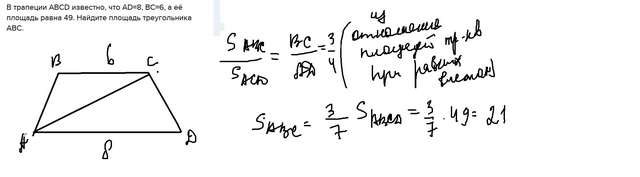 В трапеции ABCD известно, что AD=8, BC=6, а её
площадь равна 49. Найдите площадь треугольника
ABC.
B 6 C
A 8 D
S ABC / S ACD = BC / AD = 3/4 ( из
отношения
площадей тр-ков
при равных
высотах)
S ABC = 3/7 S ABCD = 3/7 · 49 = 21